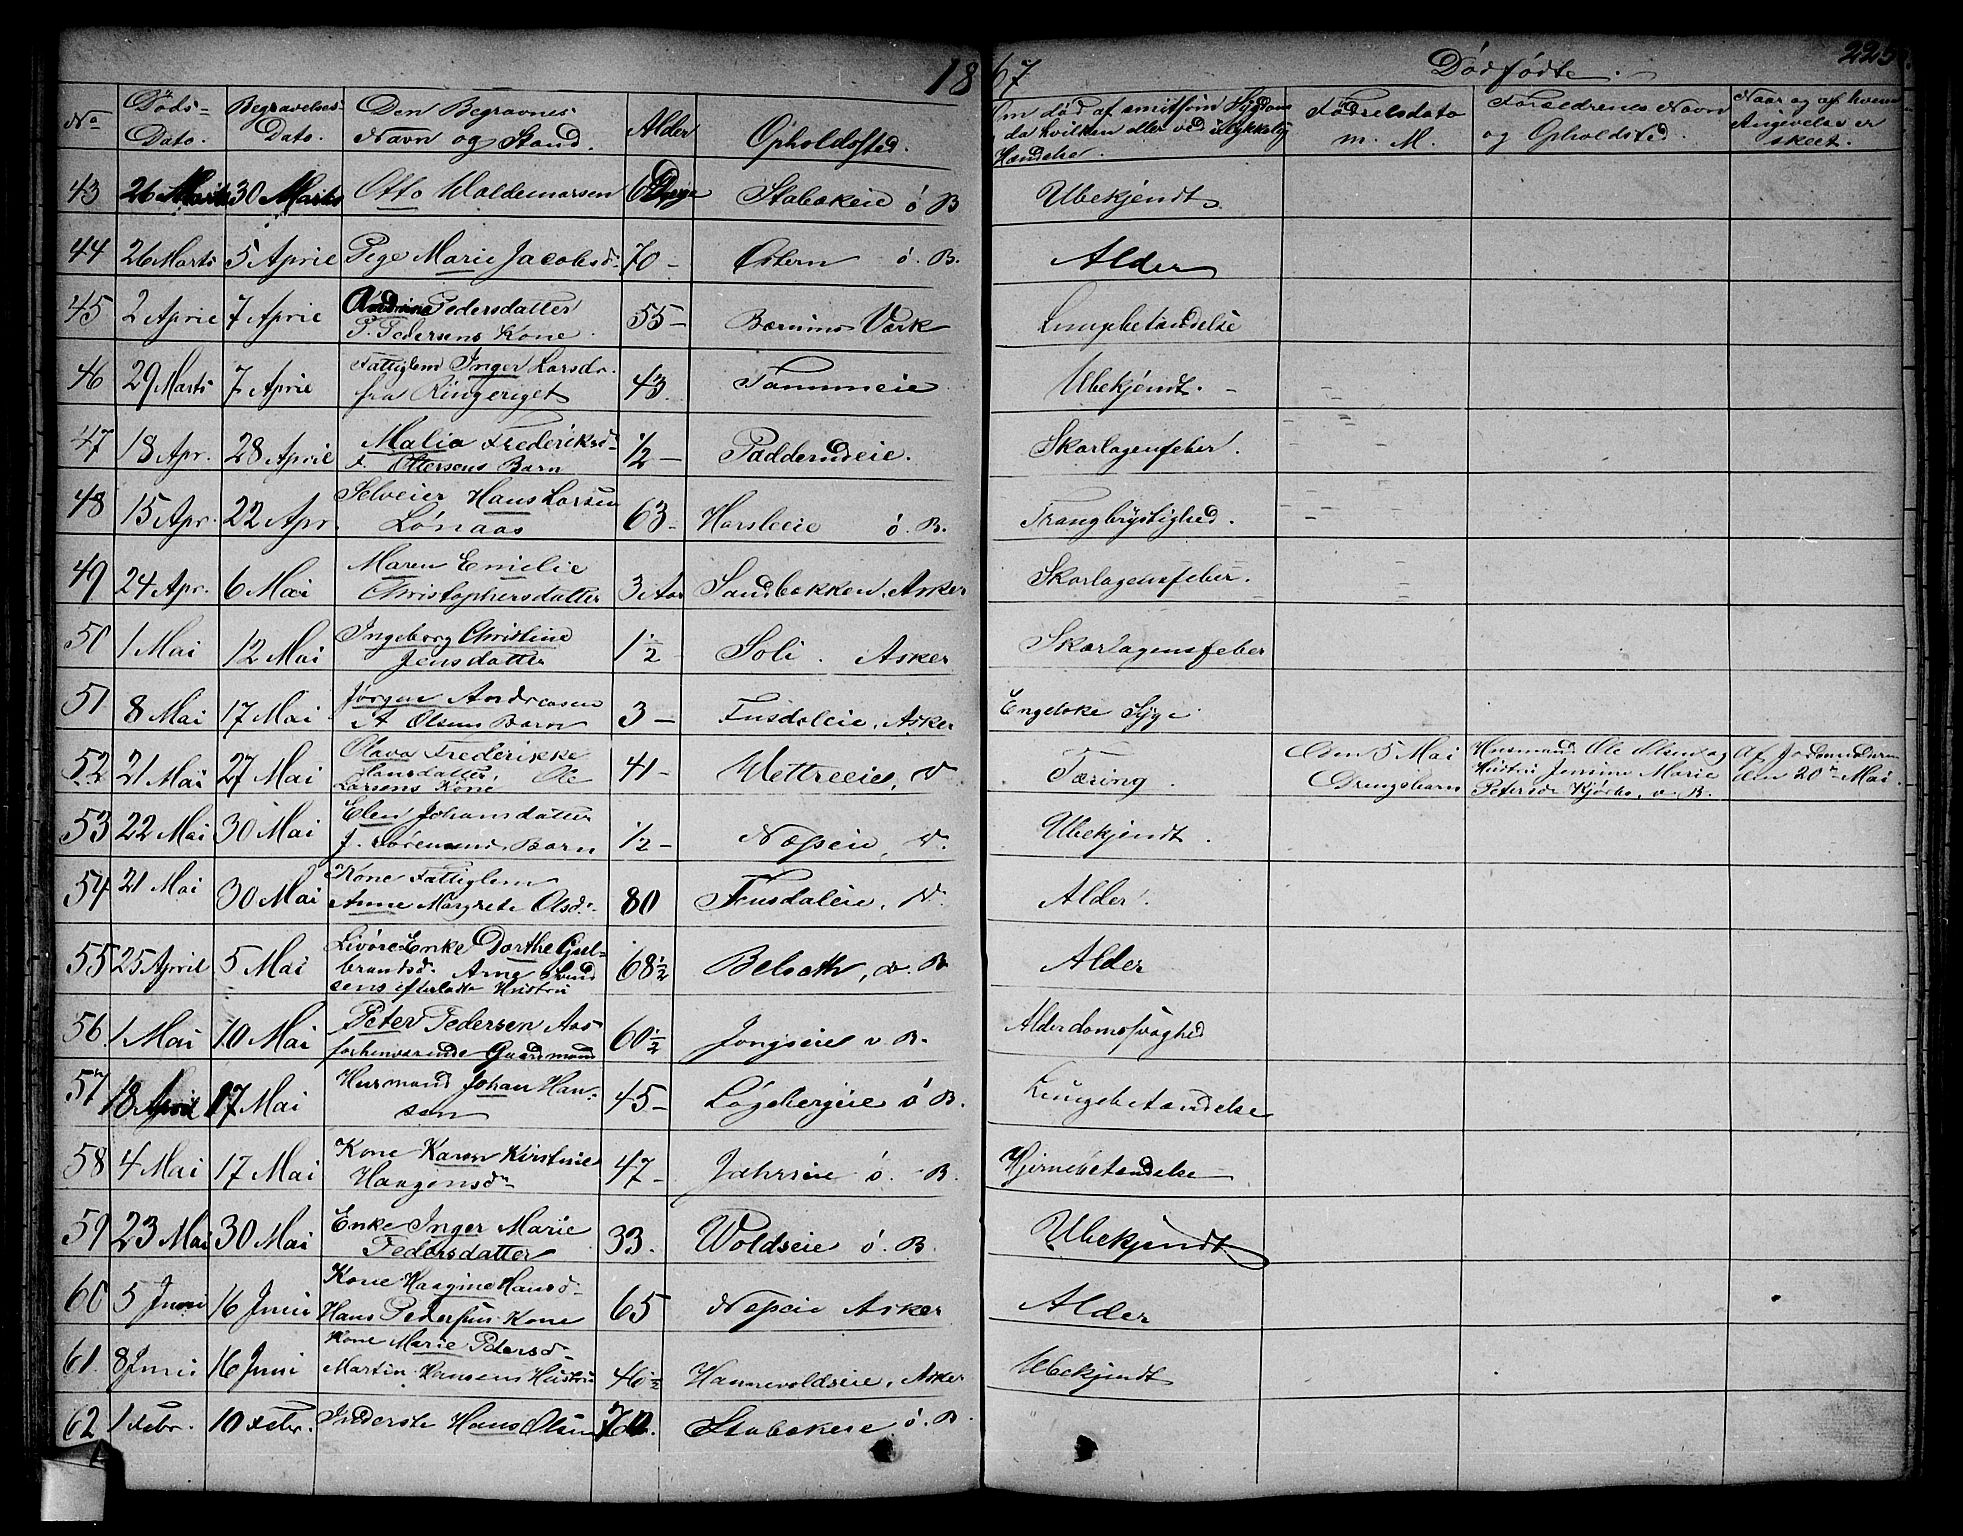 1867
Dødfødte.
225
No
Døds-
Dato.
Begravelses
Dato.
Den Begravnes
Navn og Stand.
Alder
Opholdssted.
Om død af smitsom Sygdom
da hvilken eller ved ulykkelig
Hændelse.
Fødselsdato
m. M.
Forældrenes Navn
og Opholdsted.
Naar og af hvem
Angivelse er
skeet.
43 26 Marts 30 Marts Otto Waldemarsen 6 Dage Stabækeie ø B Ubekjendt
44 26 Marts 5 April Pige Marie Jacobsd. 70 - Østern ø. B. Alder
45 2 April 7 April Pedersdatter
P. Pedersens Kone. 55 - Bærums Værk Lungebetændelse
46 29 Marts 7 April Fattiglem Inger Larsdr.
fra Ringeriget 43. Tanumeie Ubekjendt. -
47 18 Apr. 28 April Malia Frederiksd
F. Ottersens Barn 1/2 - Padderudeie. Skarlagensfeber.
48 15 Apr. 22 Apr. Selveier Hans Larsen
Lønaas 63 - Harsleeie ø. B. Trangbrystighed.
49 24 Apr. 6 Mai Maren Emilie
Christophersdatter 3 Aar Sandbakken, Asker Skarlagensfeber.
50 1 Mai 12 Mai Ingeborg Christine
Jensdatter 1 1/2 Soli. Asker Skarlagensfeber
51 8 Mai 17 Mai Jørgen Andreasen
A Olsens Barn 3 - Fusdaleie, Asker Engelske Syge
52 21 Mai 27 Mai Olava Frederikke
Hansdatter, Ole
Larsens Kone 41 - Wettreeie, Tæring.
Den 5 Mai
Drengebarn
Husmand Ole Olsen og
Hustru Jensine Marie
Petersd Kjørbo, v. B.
Af Jordemoderen
den 20 Mai.
53 22 Mai 30 Mai Elen Johansdatter
J. Sørensens Barn 1/2 - Næseie, Ubekjendt.
54 21 Mai 30 Mai Kone Fattiglem
Anne Margrete Olsd. 80 Fusdaleie, Alder.
55 25 April 5 Mai Livøre Enke Dorthe Gul-
brandsd. Arne Svend
sens efterladte Hustru 68 1/2 v. B Alder
56 1 Mai 10 Mai Peter Pedersen Aas
forhenværende Gaardmand 60 1/2 Jongseie v B. Alderdomssvaghed
57 18 April 17 Mai Husmand Johan Han-
sen 45 - Løgebergeie ø B. Lungebetændelse
58 4 Mai 17 Mai Kone Karen Kirstine
Haagensdr 47 - Jahrseie ø. B. Hjernebetændelse
59 23 Mai 30 Mai Enke Inger Marie
Pedersdatter 33. Woldseie ø. B. Ubekjendt
60 5 Juni 16 Juni Kone Haagine Hansd.
Hans Pedersens Kone 65 Næseie Asker Alder
61. 8 Juni 16 Juni Kone Marie Petersd.
Martin Hansens Hustru 46 1/2 Hannevoldseie, Asker Ubekjendt
62 1 Febr. 10 Febr. Inderste Hans Olsen Stabækeie ø. B.